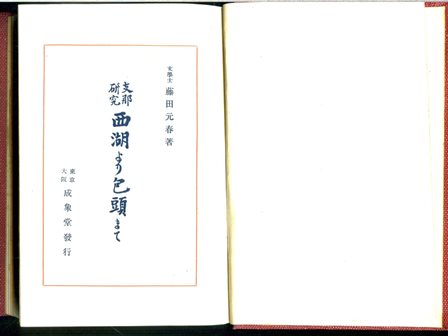 文學士 藤田元春著
支那
研究
西湖より包頭まで
東京
大阪
成象堂發行